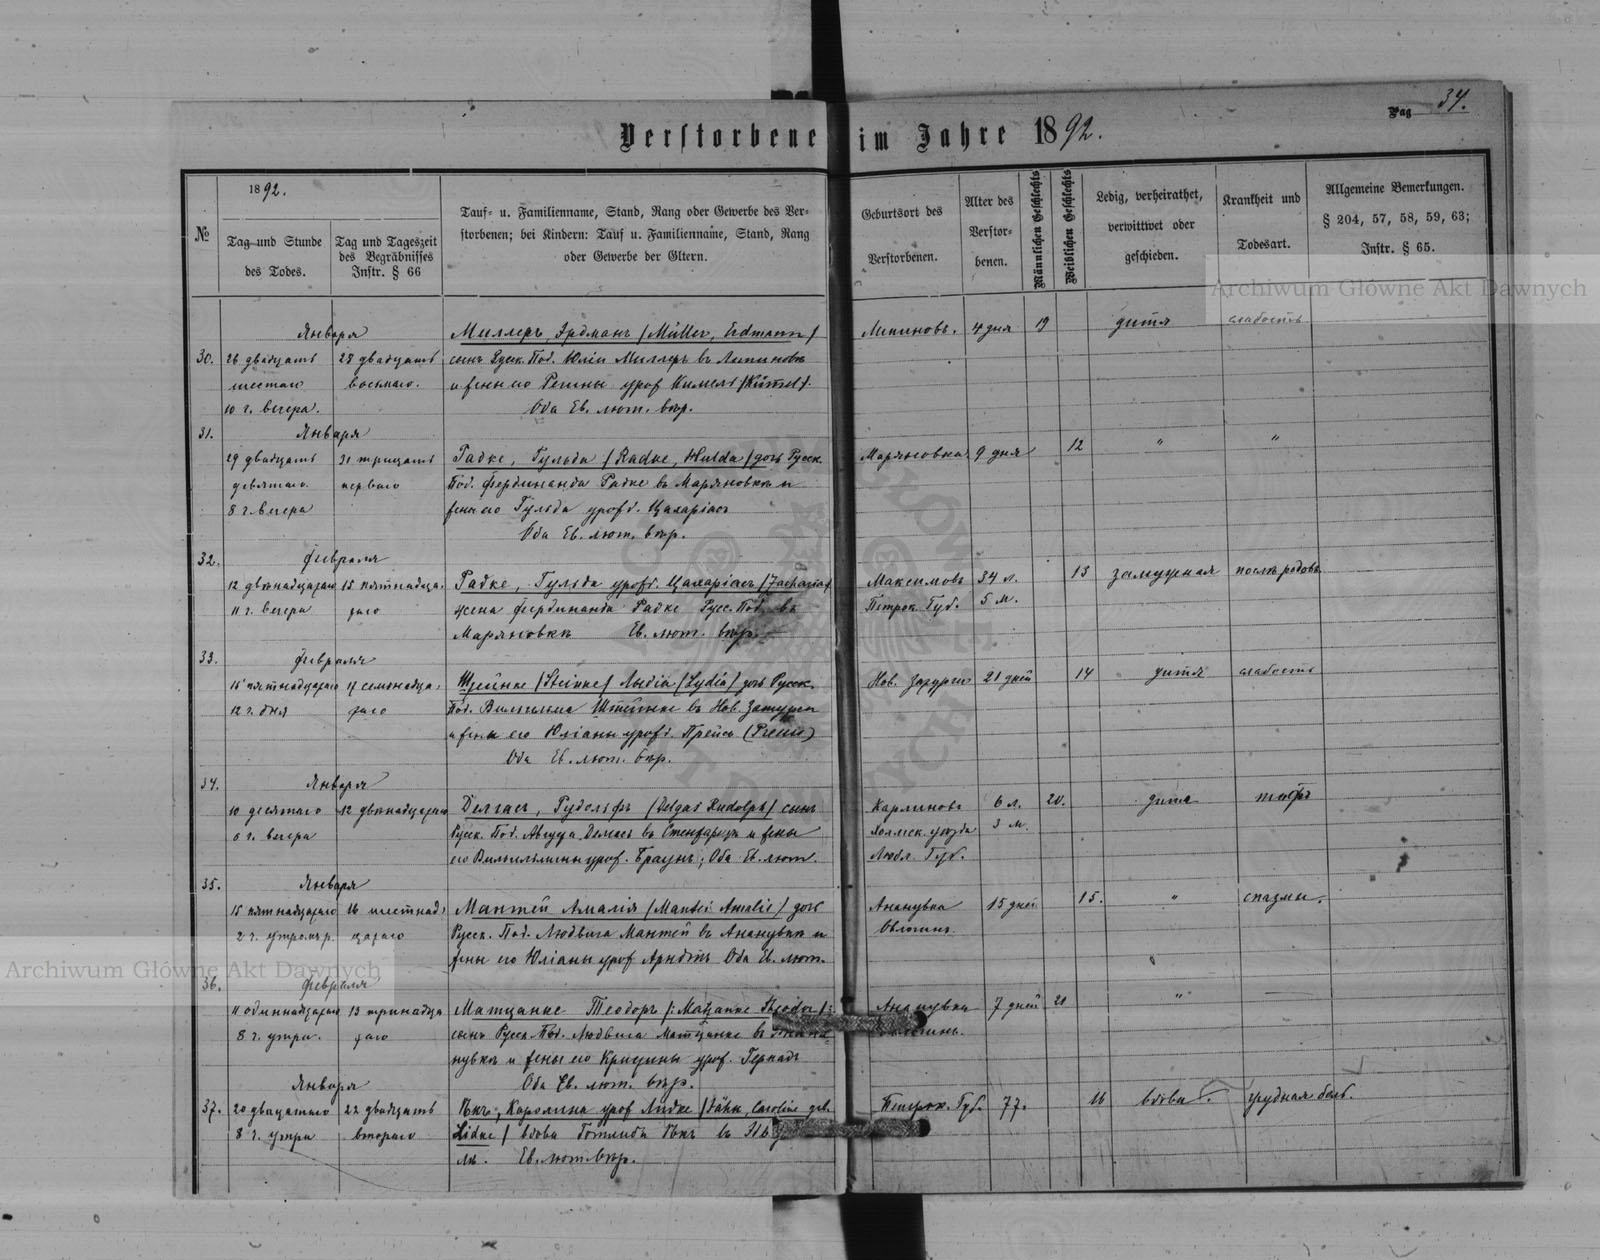 Pag 34.
Verstorbene im Jahre 1892.
1892.
№
Tag und Stunde
des Todes.
Tag und Tageszeit
des Begräbnisses
Instr. § 66
Tauf- u. Familienname, Stand, Rang oder Gewerbe des Ver-
storbenen; bei Kindern: Tauf u. Familienname, Stand, Rang
oder Gewerbe der Eltern.
Geburtsort des
Verstorbenen.
Alter des
Verstor-
benen.
Männlichen Geschlechts
Weiblichen Geschlechts
Ledig, verheirathet,
verwittwet oder
geschieden.
Krankheit und
Todesart.
Allgemeine Bemerkungen.
§ 204, 57, 58, 59, 63;
Instr. § 65.
Archiwum Główne Akt Dawnych
Января Миллеръ, Эрдманъ (Müller, Erdmann) Липиновъ. 4 дня 19 дитя слабость
30. 26 двадцать 28 двадцать сынъ Русск. Под. Юлiи Миллеръ въ Липиновъ
шестаго восьмаго. и жены его Регины урож Кимель (Kümmel).
10 г. вечера. Оба Ев. лют. вѣр.
31. Января
29 двадцать 31 тридцать Радке, Гульда (Radke, Hulda) дочь Русск. Маряновка 9 дня 12 " "
девятаго первого Под. Фердинанда Радке въ Маряновкѣ и
8 г. вечера жены его Гульда урожд. Цахарiасъ
Оба Ев. лют. вѣр.
32. Февраля
12 двѣнадцатаго 15 пятнадца- Радке, Гульда урожд. Цахарiасъ (Zacharias) Максимовъ 34 л. 13 замужная послѣ родовъ
11 г. вечера таго жена Фердинанда Радке Русс. Под. въ Петрок. Губ. 5 м.
Маряновкѣ Ев. лют. вѣр.
33. Февраля
15 пятнадцатаго 17 семнадца- Штейнке (Steinke) Лидiа (Lydia) дочь Русск. Нов. Затурцы 21 дней 14 дитя слабость
12 г. дня таго Под. Вильгельма Штейнке въ Нов. Затурцы
и жены его Юлiаны урожд. Прейсъ (Preuss)
Оба Ев. лют. вѣр.
34. Января
10 десятаго 12 двѣнадцатаго Делгасъ, Рудольфъ (Delgas Rudolph) сынъ Карлиновъ 6 л. 20. дитя тифъ
6 г. вечера Русск. Под. Августа Делгасъ въ и жены Холмск. уѣзда 3 м.
его Вильгельмины урож. Браунъ; Оба Ев. лют. Любл. Губ.
35. Января
15 пятнадцатаго 16 шестнад- Мантей Амалiя (Mantei Amalie) дочь Ананувка 15 дней 15. " спазмы.
2 г. утромъ цатаго Русск. Под. Людвига Мантей въ Ананувкѣ и
жены его Юлiаны урож Арндтъ Оба Ев. лют.
Archiwum Główne Akt Dawnych
36. Февраля
11 одиннадцатаго 13 тринадца Матцанке Теодоръ (: Matzanke Theodor :) Ананувка 7 дней 21 " —
8 г. утра. таго сынъ Русск. Под. Людвига Матцанке въ Анана-
нувкѣ и жены его Кристины урож. Геркадъ
Января Оба Ев. лют. вѣр.
37. 20 двадцатаго 22 двадцать Каролина урож Лидке (Jähn, Caroline geb. Петрок. Губ. 77. 16 вдова. грудная боль.
8 г. утра втораго Lidke) вдова Готлиба въ
Ев. лют. вѣр.